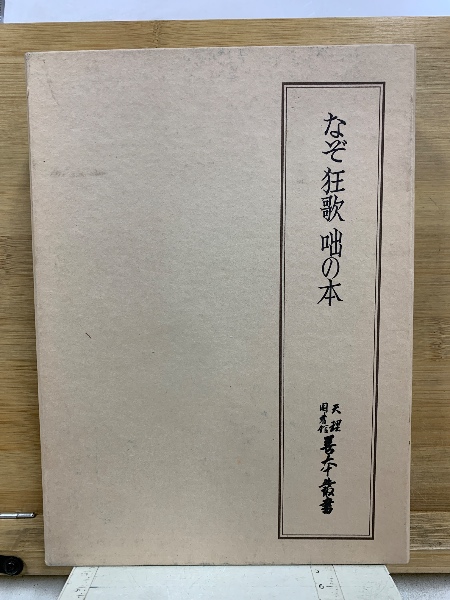 なぞ 狂歌 咄の本
天理
図書館
善本叢書